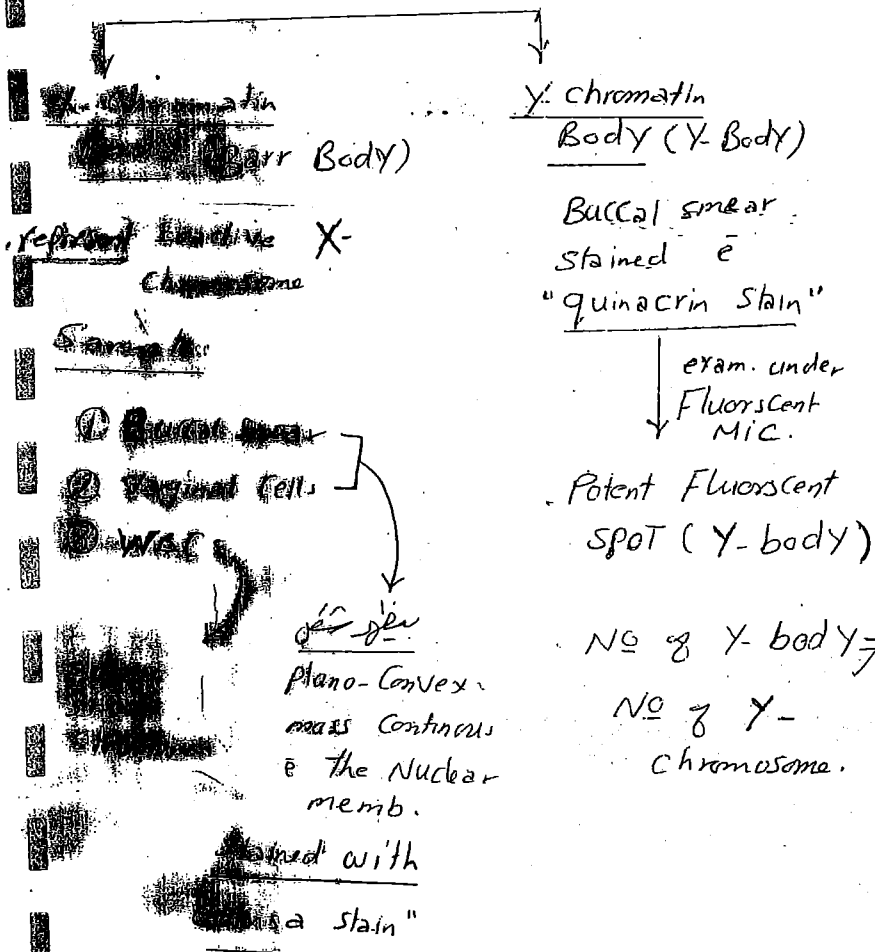 X- Chromatin
(Barr Body)
. represent Inactive X-
Chromosome
Samples
① Buccal smear
② Vaginal Cells
③ WBCs
Plano-Convex.
mass Continous
ē the Nuclear
memb.
stained with
stain"
Y. chromatin
Body (Y-Body)
Buccal smear.
Stained ē
"quinacrin Stain"
exam. under
Fluorscent
Mic.
. Potent Fluorscent
SPOT (Y-body)
. No of Y-body =
No of Y-
chromosome.